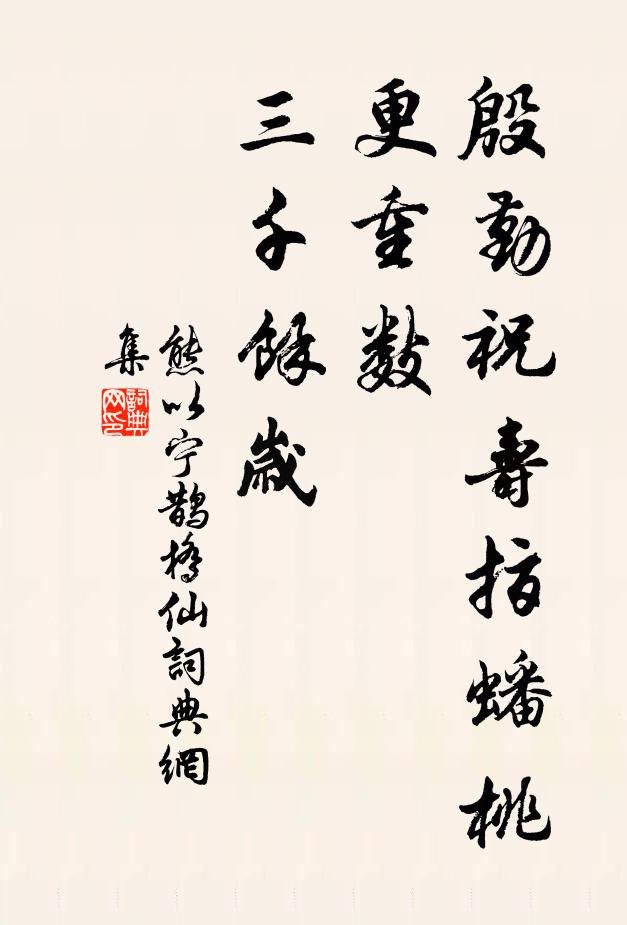 殷勤祝壽指蟠桃
更重數
三千餘歲
熊以宁鵲橋仙詞典網
集
詞典
网印